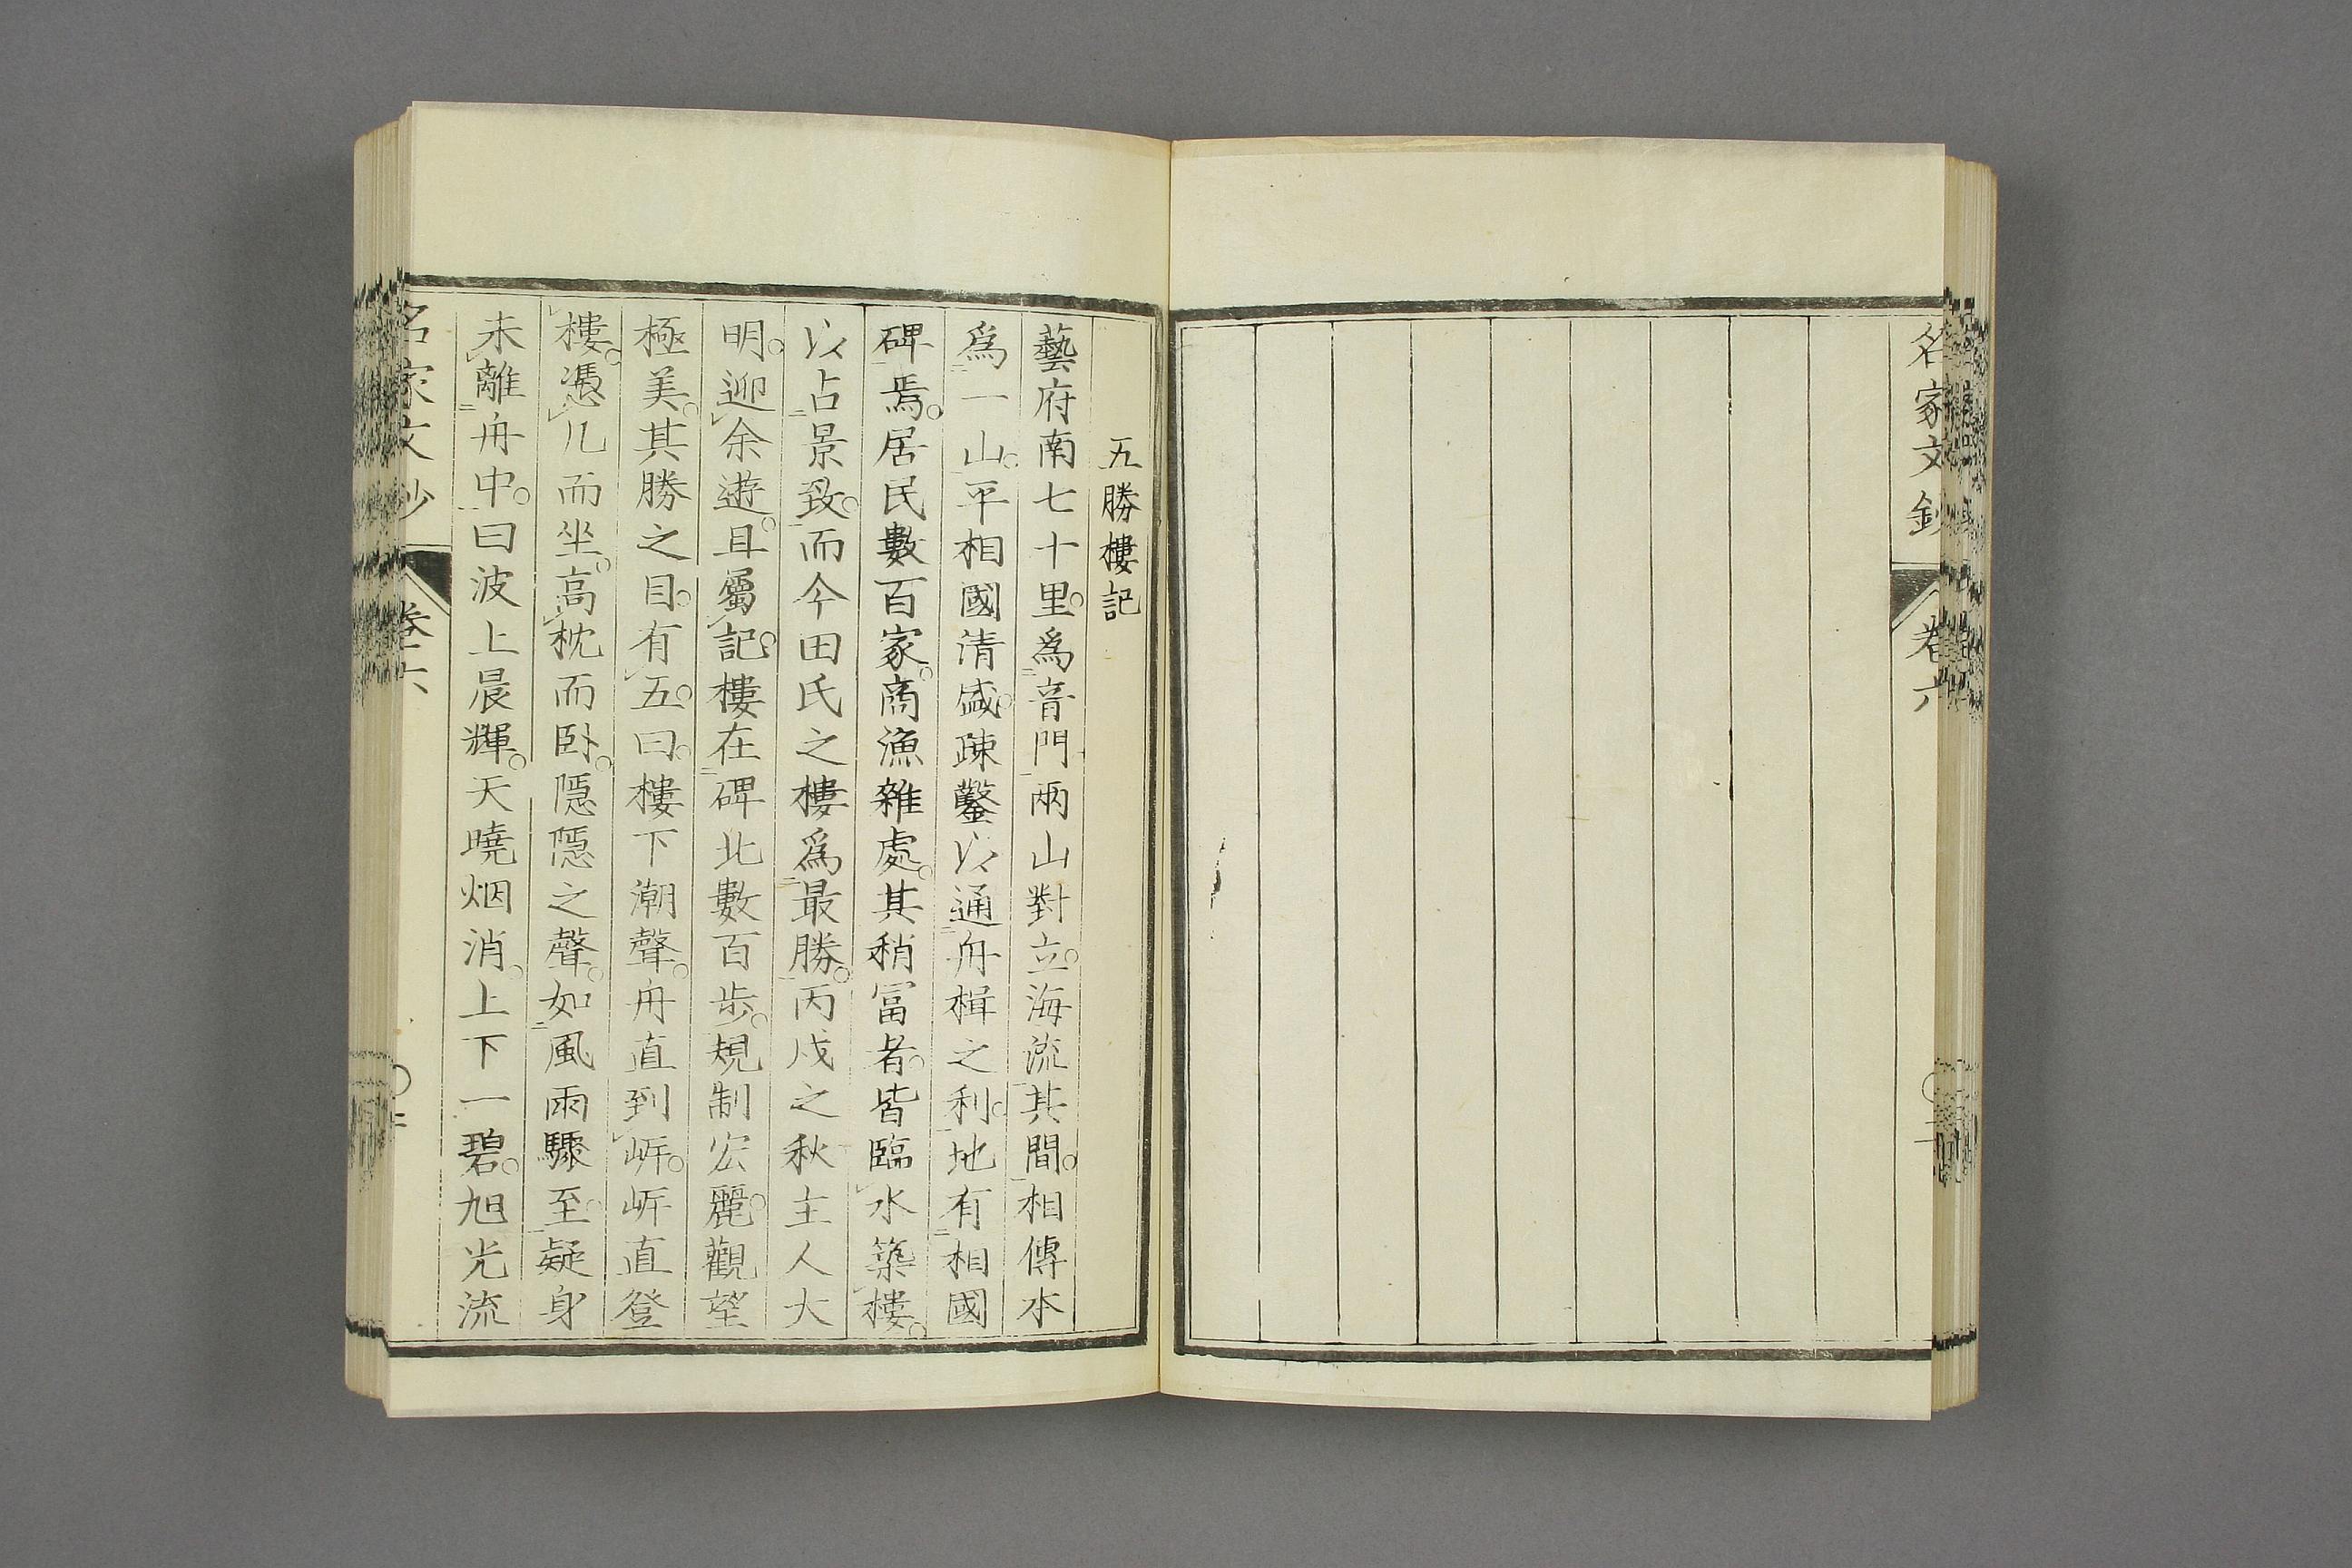 名家文鈔
卷六
五勝樓記
藝府南七十里爲音門兩山對立海流其間相傳本
爲一山平相國清盛疎鑿以通舟楫之利地有相國
碑焉居民數百家商漁雜處其稍冨者皆臨水築樓
以占景致而今田氏之樓爲最勝丙戌之秋主人大
明迎余遊且屬記樓在碑北數百歩規制宏麗觀望
極美其勝之目有五曰樓下潮聲舟直到㟁㟁直登
樓憑几而坐高枕而臥隱隱之聲如風雨驟至疑身
未離舟中曰波上晨輝天曉烟消上下一碧旭光流
名家文鈔
卷六